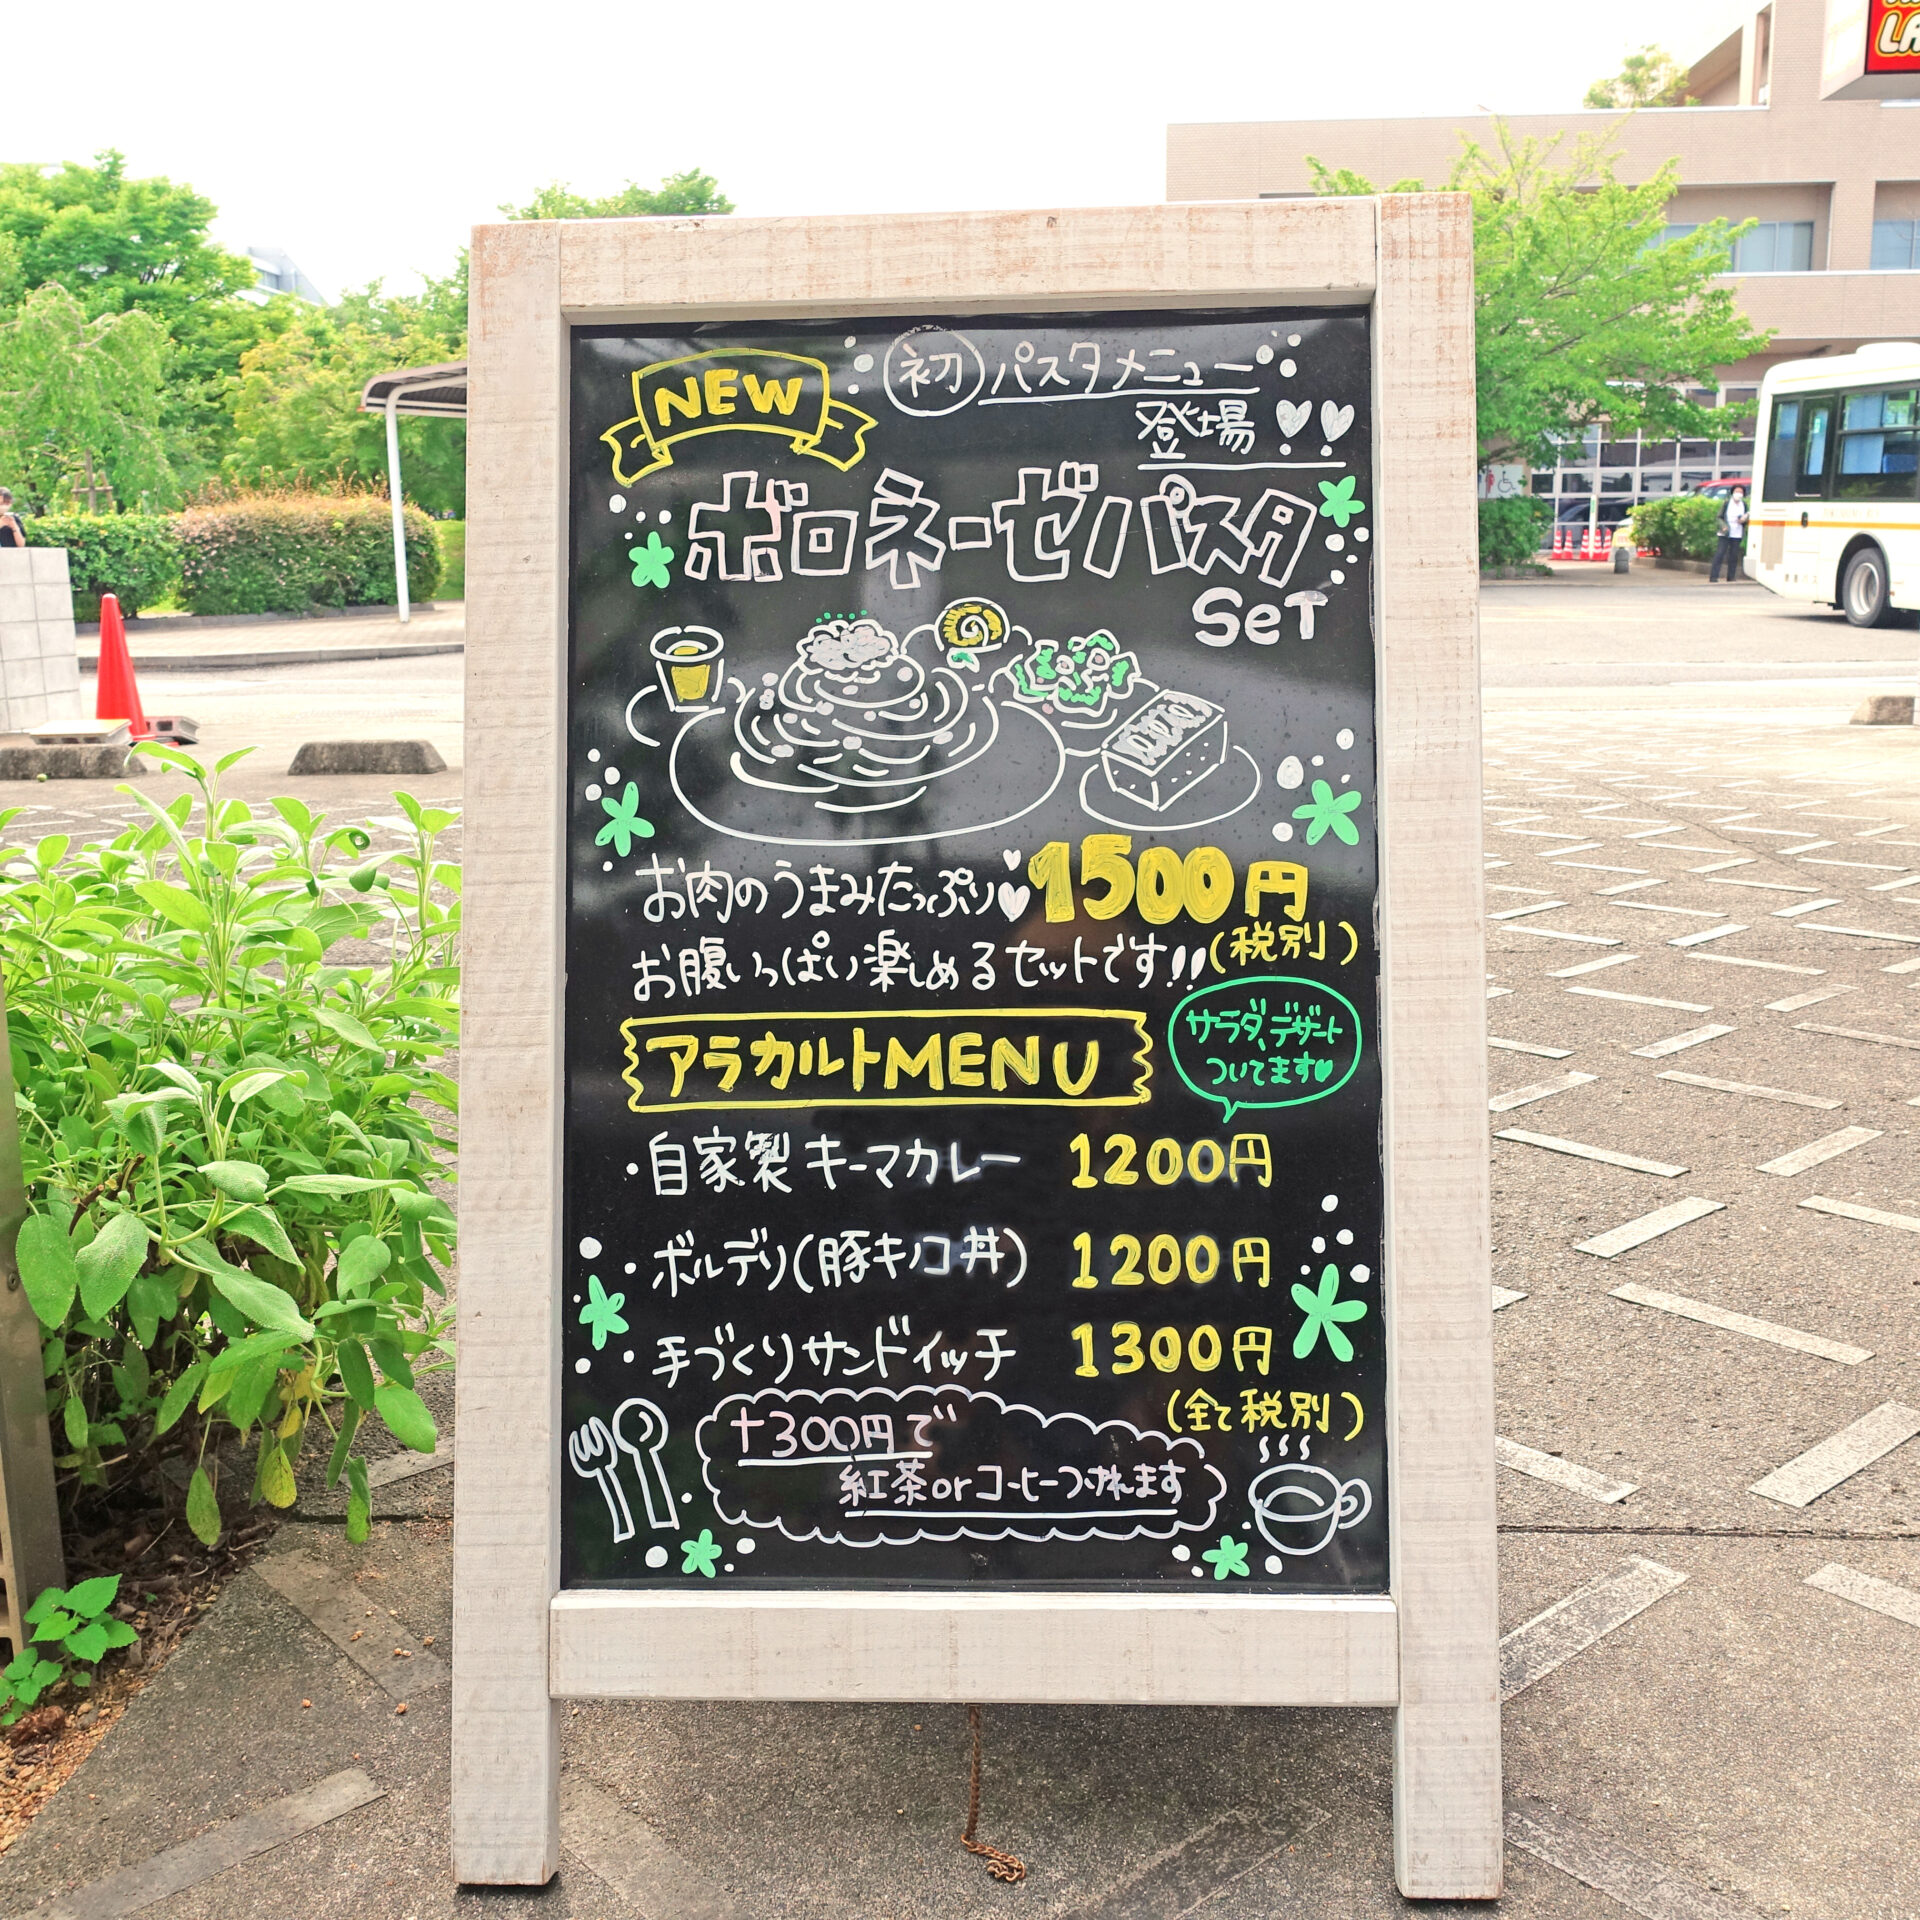 NEW
初 パスタメニュー
登場!!
ボロネーゼパスタ
SeT
お肉のうまみたっぷり 1500円
(税別)
お腹いっぱい楽しめるセットです!!
サラダ、デザート
ついてます
アラカルトMENU
・自家製キーマカレー 1200円
・ボルデリ(豚キノコ丼) 1200円
・手づくりサンドイッチ 1300円
(全て税別)
+300円で
紅茶orコーヒーつけれます